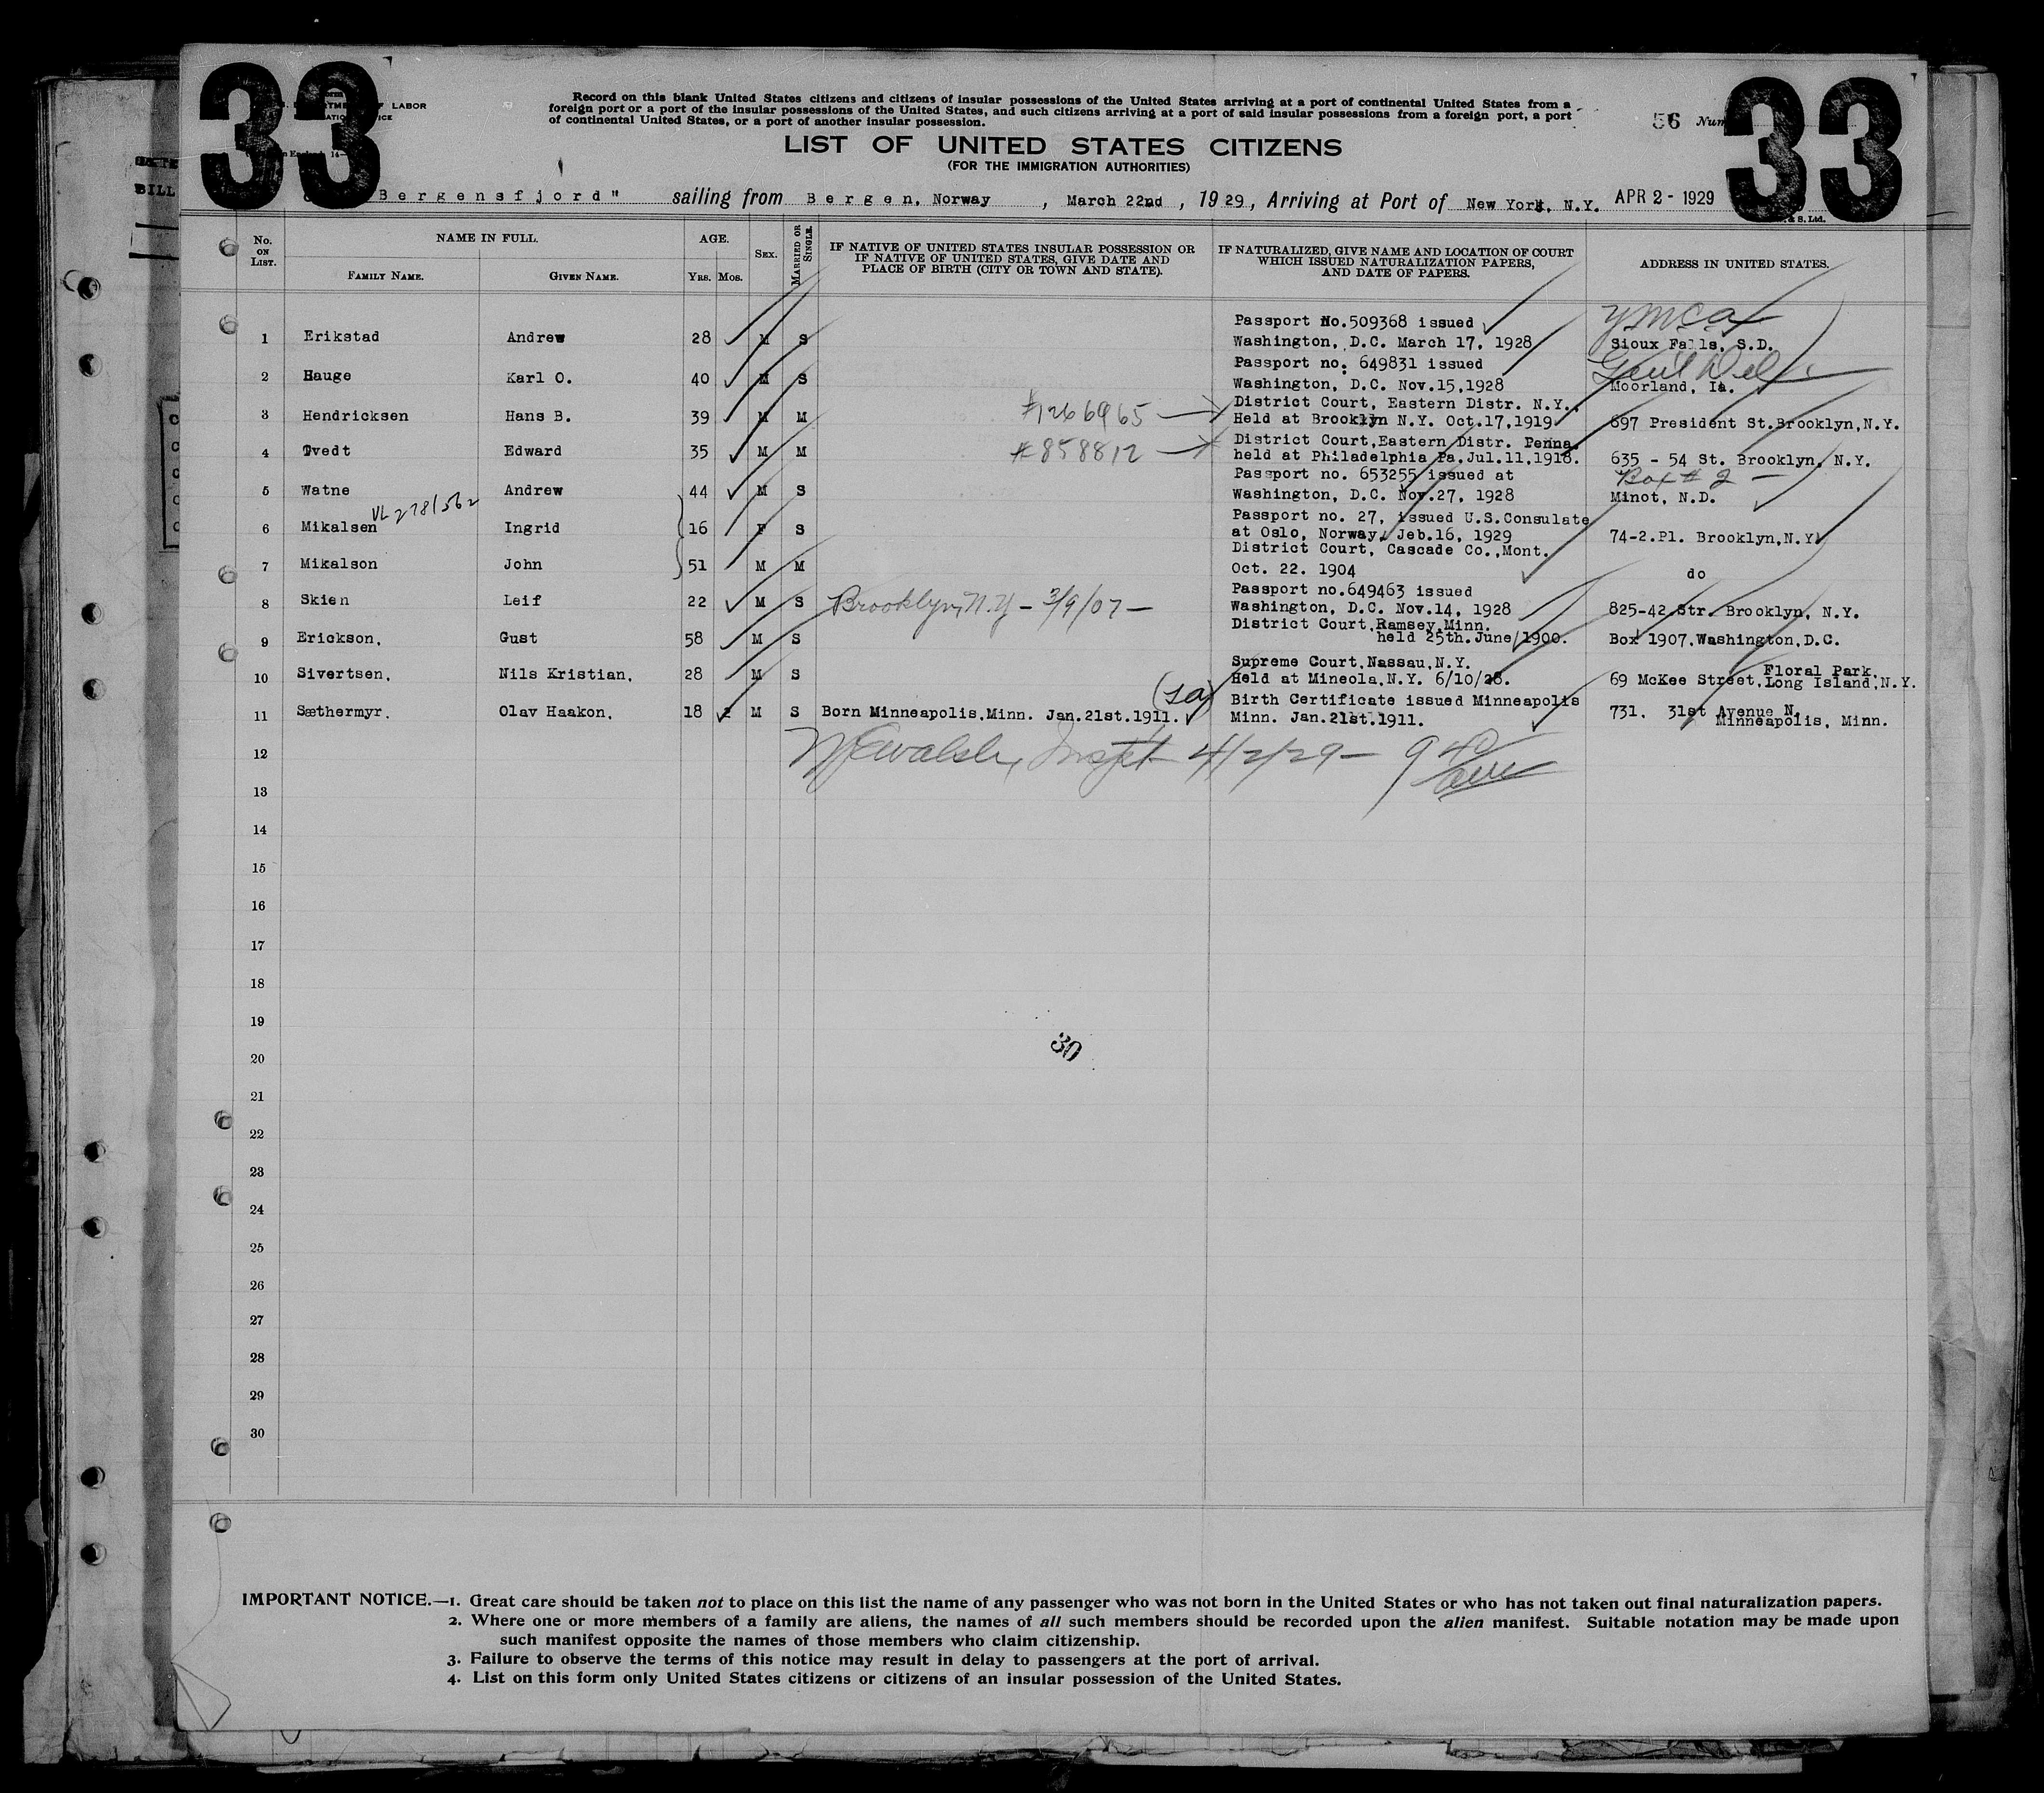 33
33
LABOR
Record on this blank United States citizens and citizens of insular possessions of the United States arriving at a port of continental United States from a
foreign port or a port of the insular possessions of the United States, and such citizens arriving at a port of said insular possessions from a foreign port, a port
of continental United States, or a port of another insular possession.
56
LIST OF UNITED STATES CITIZENS
(FOR THE IMMIGRATION AUTHORITIES)
Bergensfjord" sailing from Bergen, Norway, March 22nd, 1929, Arriving at Port of New York, N.Y. APR 2 - 1929
& S. Ltd.
No. ON LIST.
NAME IN FULL.
FAMILY NAME. GIVEN NAME.
AGE.
YRS. MOS.
SEX.
MARRIED OR SINGLE.
IF NATIVE OF UNITED STATES INSULAR POSSESSION OR
IF NATIVE OF UNITED STATES, GIVE DATE AND
PLACE OF BIRTH (CITY OR TOWN AND STATE).
IF NATURALIZED, GIVE NAME AND LOCATION OF COURT
WHICH ISSUED NATURALIZATION PAPERS,
AND DATE OF PAPERS.
ADDRESS IN UNITED STATES.
Passport No.509368 issued YMCA
1 Erikstad Andrew 28 M S Washington, D.C. March 17, 1928 Sioux Falls, S.D.
Passport no. 649831 issued
2 Hauge Karl O. 40 M S Washington, D.C. Nov.15,1928 Moorland, Ia.
District Court, Eastern Distr. N.Y.
3 Hendricksen Hans B. 39 M M #1266965 Held at Brooklyn N.Y. Oct.17,1919 697 President St.Brooklyn,N.Y.
District Court,Eastern Distr. Penna.
4 Tvedt Edward 35 M M #858812 held at Philadelphia Pa.Jul.11,1918. 635 - 54 St. Brooklyn, N.Y.
Passport no. 653255 issued at Box # 2 -
5 Watne Andrew 44 M S Washington, D.C. Nov.27, 1928 Minot, N.D.
VL 278/562
Passport no. 27, issued U.S.Consulate
6 Mikalsen Ingrid 16 F S at Oslo, Norway, Jeb.16, 1929 74-2.Pl. Brooklyn,N.Y.
District Court, Cascade Co.,Mont.
7 Mikalson John 51 M M Oct. 22. 1904 do
Passport no.649463 issued
8 Skien Leif 22 M S Brooklyn, N.Y - 3/9/07 - Washington, D.C. Nov.14, 1928 825-42 Str. Brooklyn, N.Y.
District Court,Ramsey,Minn.
9 Erickson, Gust 58 M S held 25th.June/1900. Box 1907,Washington,D.C.
Supreme Court,Nassau,N.Y. Floral Park,
10 Sivertsen, Nils Kristian, 28 M S Held at Mineola,N.Y. 6/10/28. 69 McKee Street,Long Island,N.Y.
Birth Certificate issued Minneapolis
11 Sæthermyr, Olav Haakon, 18 2 M S Born Minneapolis,Minn. Jan.21st.1911. Minn. Jan.21st.1911. 731, 31st Avenue N.
Minneapolis, Minn.
12 Walsh, Inspt 4/2/29 - 9 40
13
14
15
16
17
18
19
30
20
21
22
23
24
25
26
27
28
29
30
IMPORTANT NOTICE.—1. Great care should be taken not to place on this list the name of any passenger who was not born in the United States or who has not taken out final naturalization papers.
2. Where one or more members of a family are aliens, the names of all such members should be recorded upon the alien manifest. Suitable notation may be made upon
such manifest opposite the names of those members who claim citizenship.
3. Failure to observe the terms of this notice may result in delay to passengers at the port of arrival.
4. List on this form only United States citizens or citizens of an insular possession of the United States.